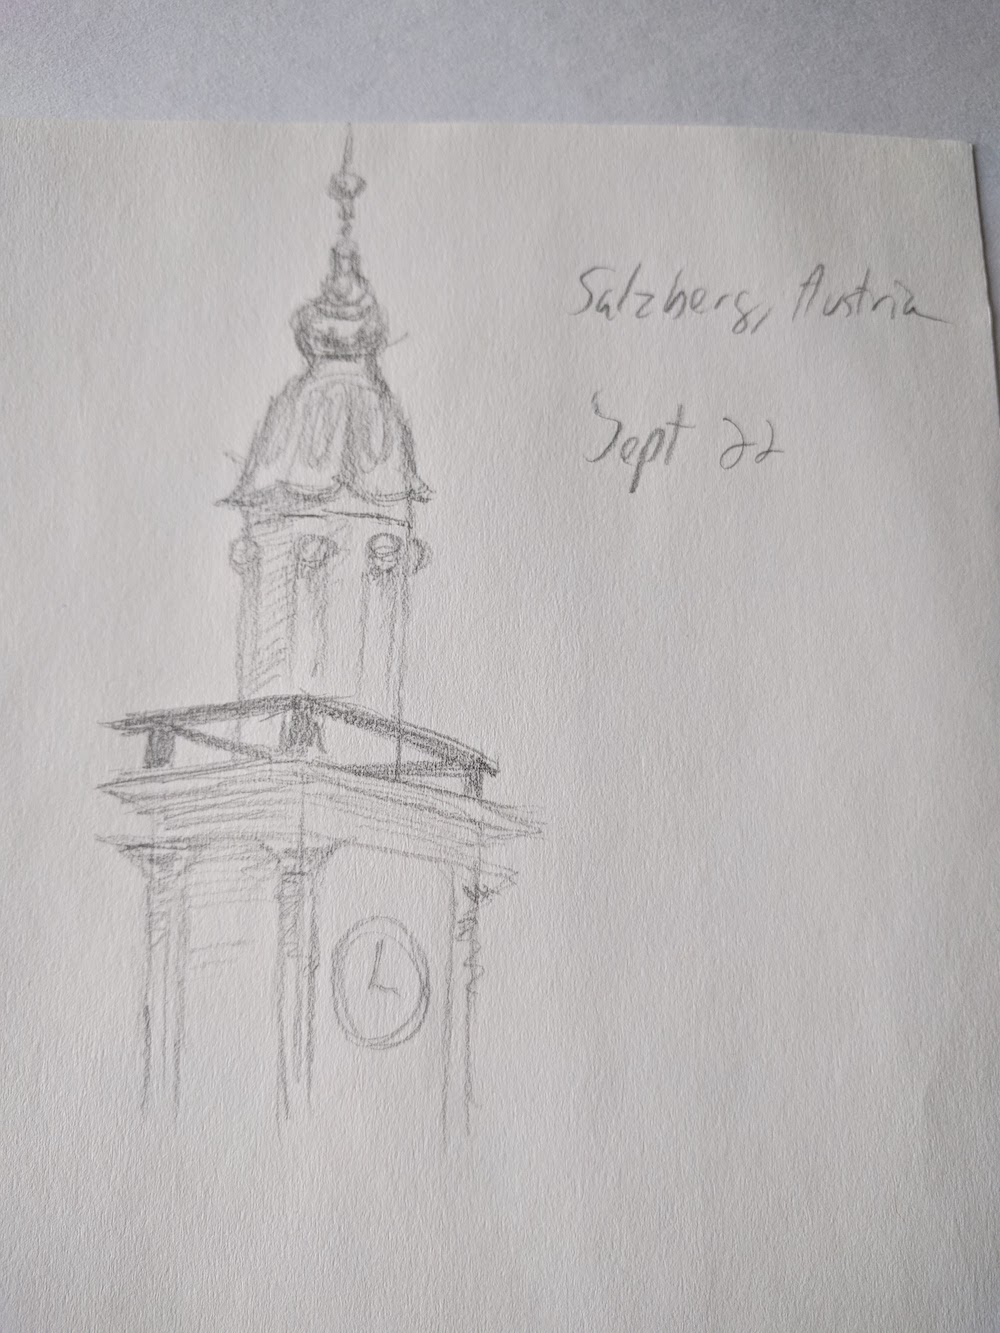 Salzberg, Austria
Sept 22